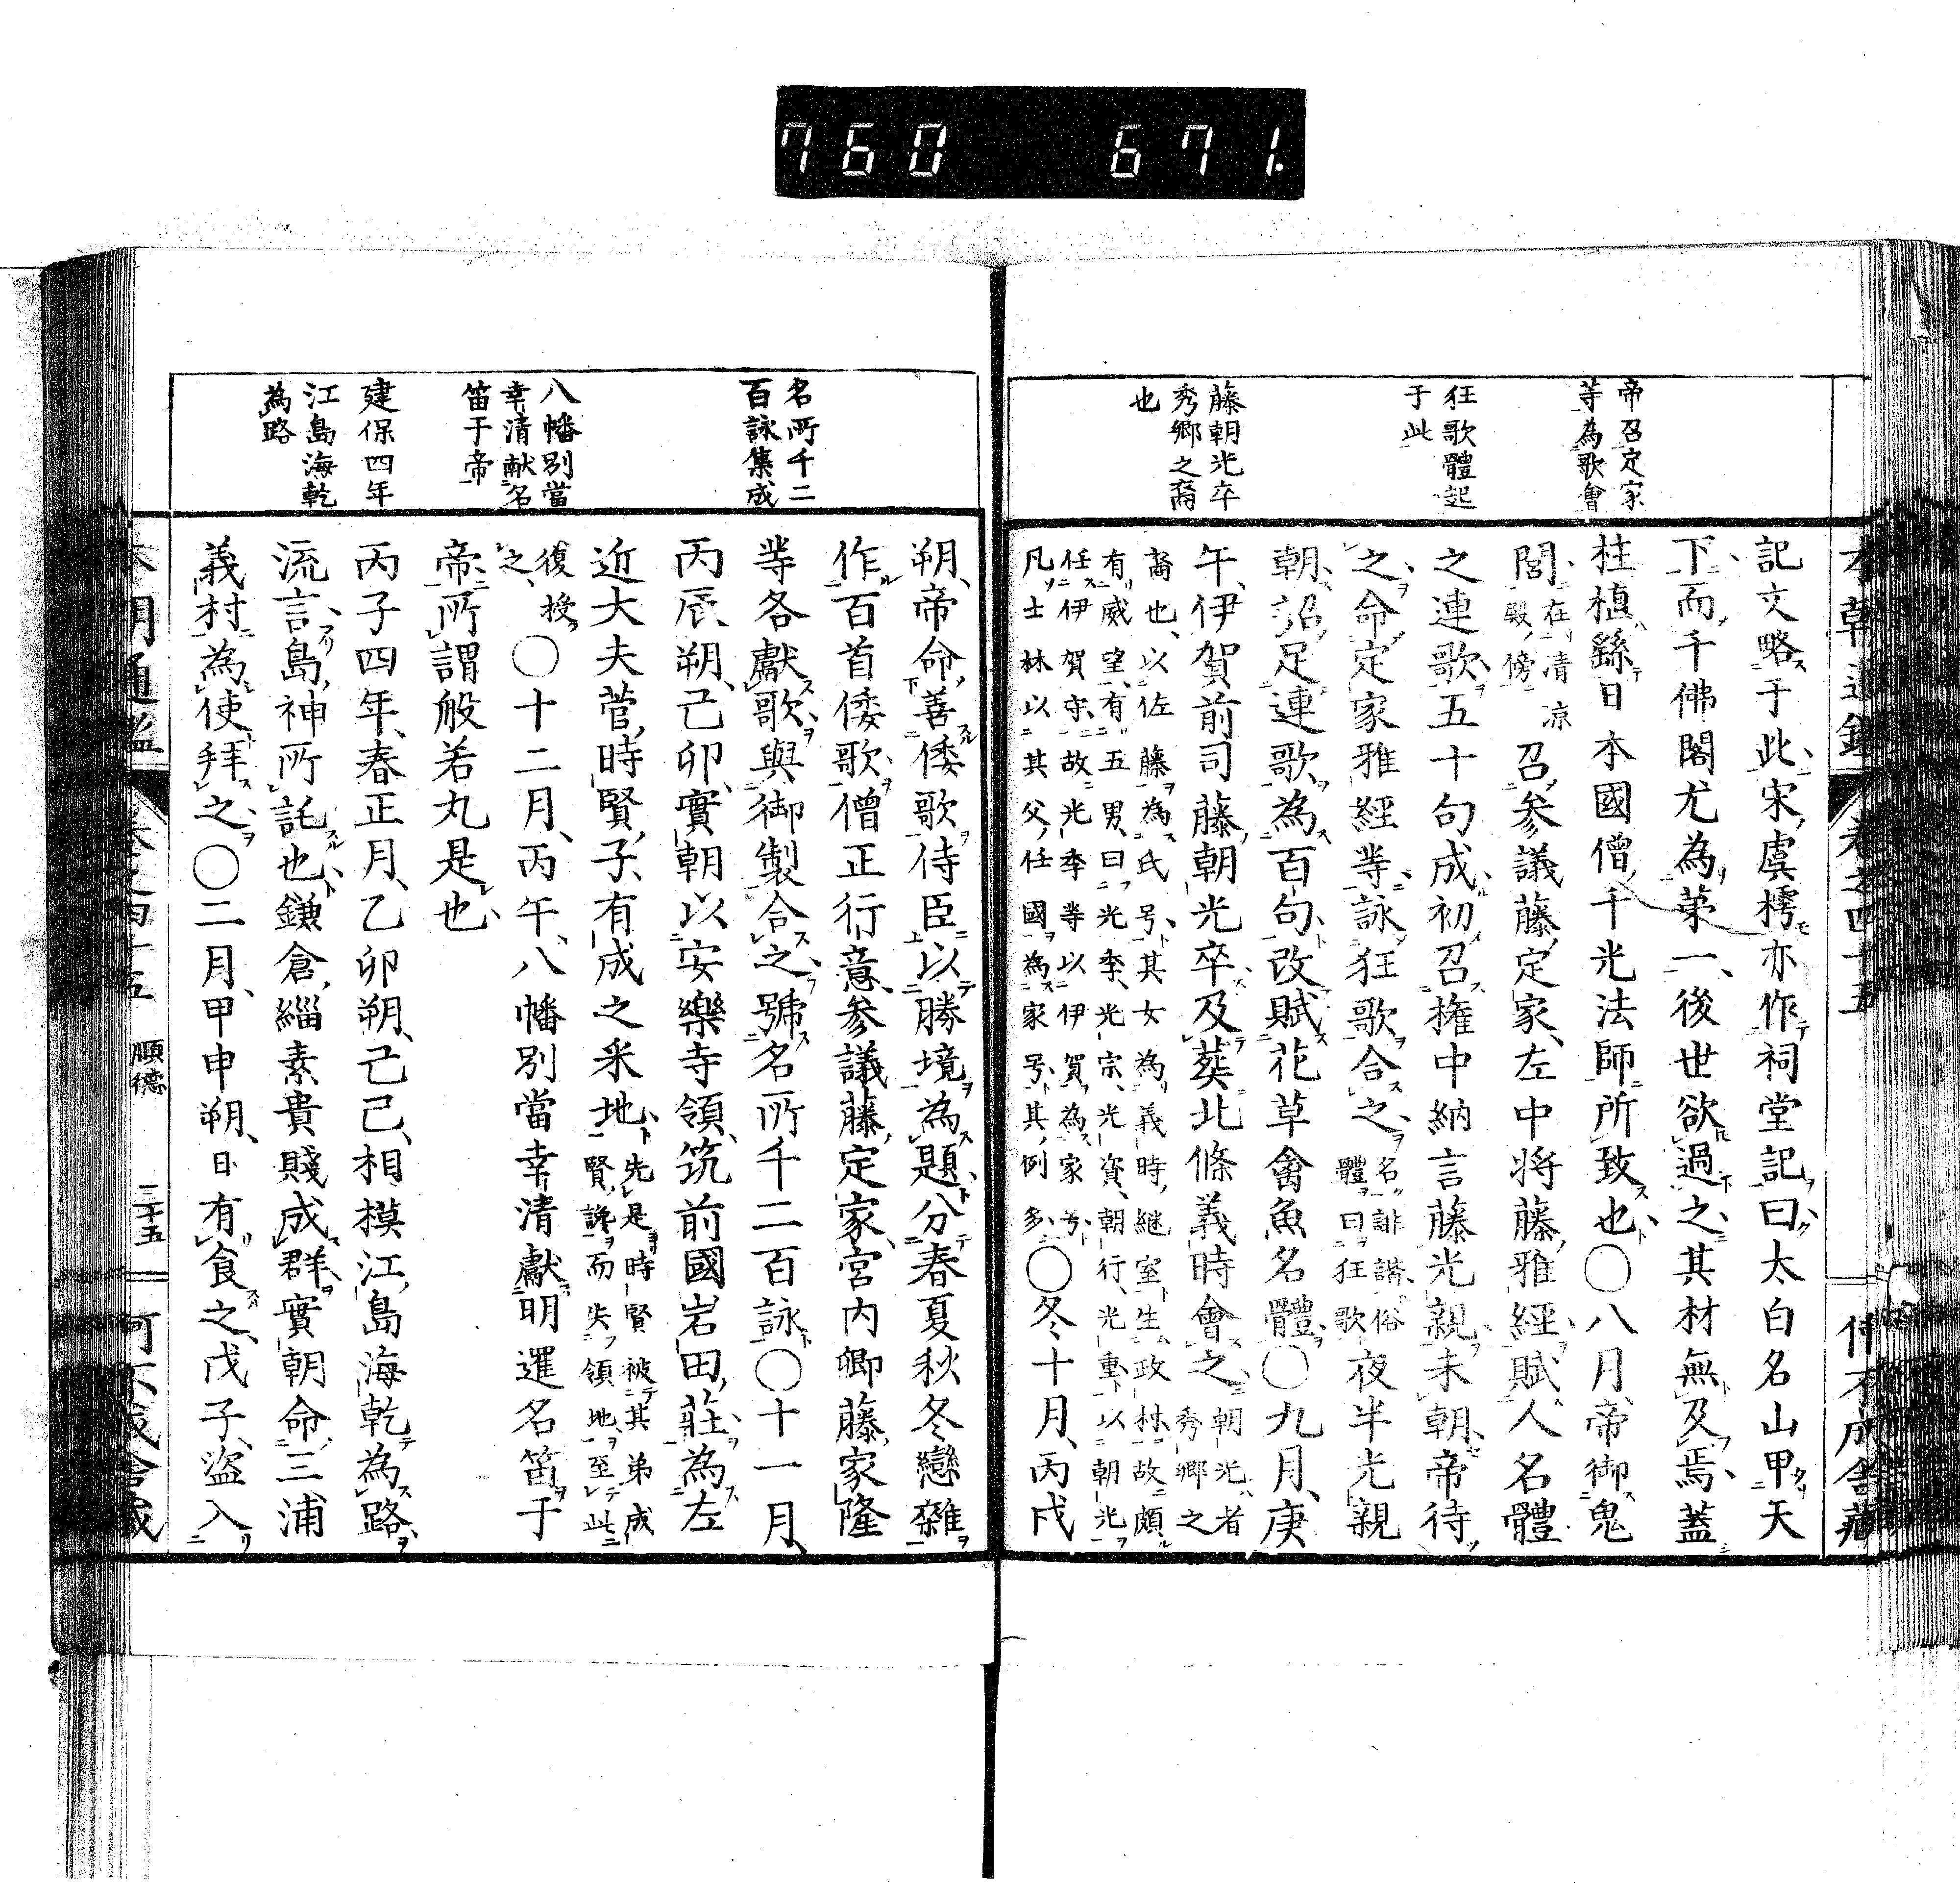 760 671.
帝召定家
等為歌會
狂歌體起
于此
藤朝光卒
秀郷之裔
也
記文略于此宋虞樗亦作祠堂記曰太白名山甲天
下而千佛閣尤為第一後世欲過之其材無及焉蓋
柱植繇日本國僧千光法師所致也○八月帝御鬼
閤在清凉殿傍召參議藤定家左中將藤雅經賦人名體
之連歌五十句成初召權中納言藤光親未朝帝待
之命定家雅經等詠狂歌合之名誹諧俗體曰狂歌夜半光親
朝詔足連歌為百句改賦花草禽魚名體○九月庚
午伊賀前司藤朝光卒及葬北條義時會之朝光者秀郷之
裔也以佐藤為氏号其女為義時継室生政村故頗
有威望有五男曰光季光宗光資朝行光重以朝光
任伊賀守故光季等以伊賀為家号
凡士林以其父任國為家号其例多○冬十月丙戌
名所千二
百詠集成
八幡別當
幸清献名
笛于帝
建保四年
江島海乾
為路
朔帝命善倭歌侍臣以勝境為題分春夏秋冬戀雜
作百首倭歌僧正行意參議藤定家宮内卿藤家隆
等各獻歌與御製合之號名所千二百詠○十一月
丙辰朔己卯實朝以安樂寺領筑前國岩田莊為左
近大夫菅時賢子有成之釆地先是時賢被其弟成賢讒而失領地至此
復授之○十二月丙午八幡別當幸清獻明暹名笛于
帝所謂般若丸是也
丙子四年春正月乙卯朔己巳相模江島海乾為路
流言島神所託也鎌倉緇素貴賤成群實朝命三浦
義村為使拜之○二月甲申朔日有食之戊子盜入
順德
三十五